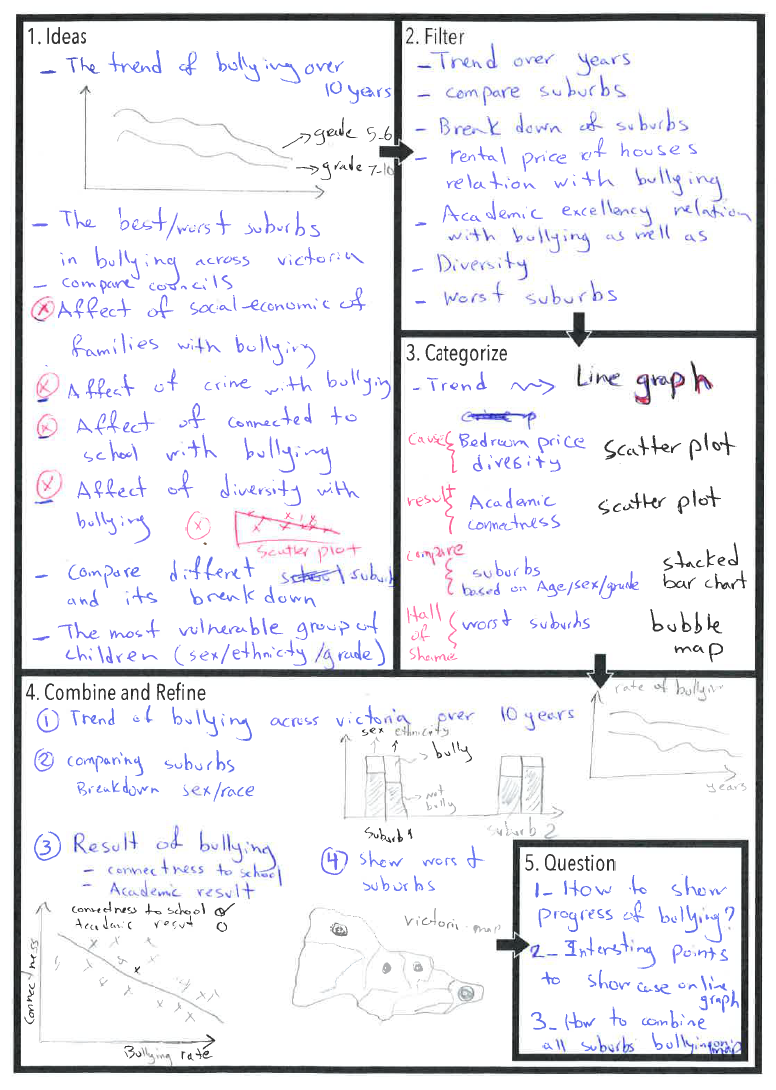 1. Ideas
- The trend of bullying over
10 years
grade 5-6
grade 7-10
- The best/worst suburbs
in bullying across victoria
- compare councils
x Affect of social-economic of
families with bullying
x Affect of crime with bullying
x Affect of connected to
school with bullying
x Affect of diversity with
bullying
x
scatter plot
- Compare differet school suburb
and its break down
- The most vulnerable group of
children (sex/ethnicty/grade)
2. Filter
- Trend over years
- compare suburbs
- Break down of suburbs
- rental price of houses
relation with bullying
- Academic excellency relation
with bullying as well as
- Diversity
- worst suburbs
3. Categorize
- Trend Line graph
cause Bedroom price scatter plot
diversity
result Academic scatter plot
connectness
compare suburbs stacked
based on Age/sex/grade bar chart
Hall of shame worst suburbs bubble
map
4. Combine and Refine
① Trend of bullying across victoria over 10 years
rate of bullying
years
② comparing suburbs
Breakdown sex/race
sex ethnicity
bully
not
bully
suburb 1 suburb 2
③ Result of bullying
- connectness to school
- Academic result
connectness to school
Academic result
Connectness
Bullying rate
④ show worst
suburbs
victoria map
5. Question
1_ How to show
progress of bullying?
2_ Interesting points
to showcase on line
graph
3_ How to combine
all suburbs bullying on map